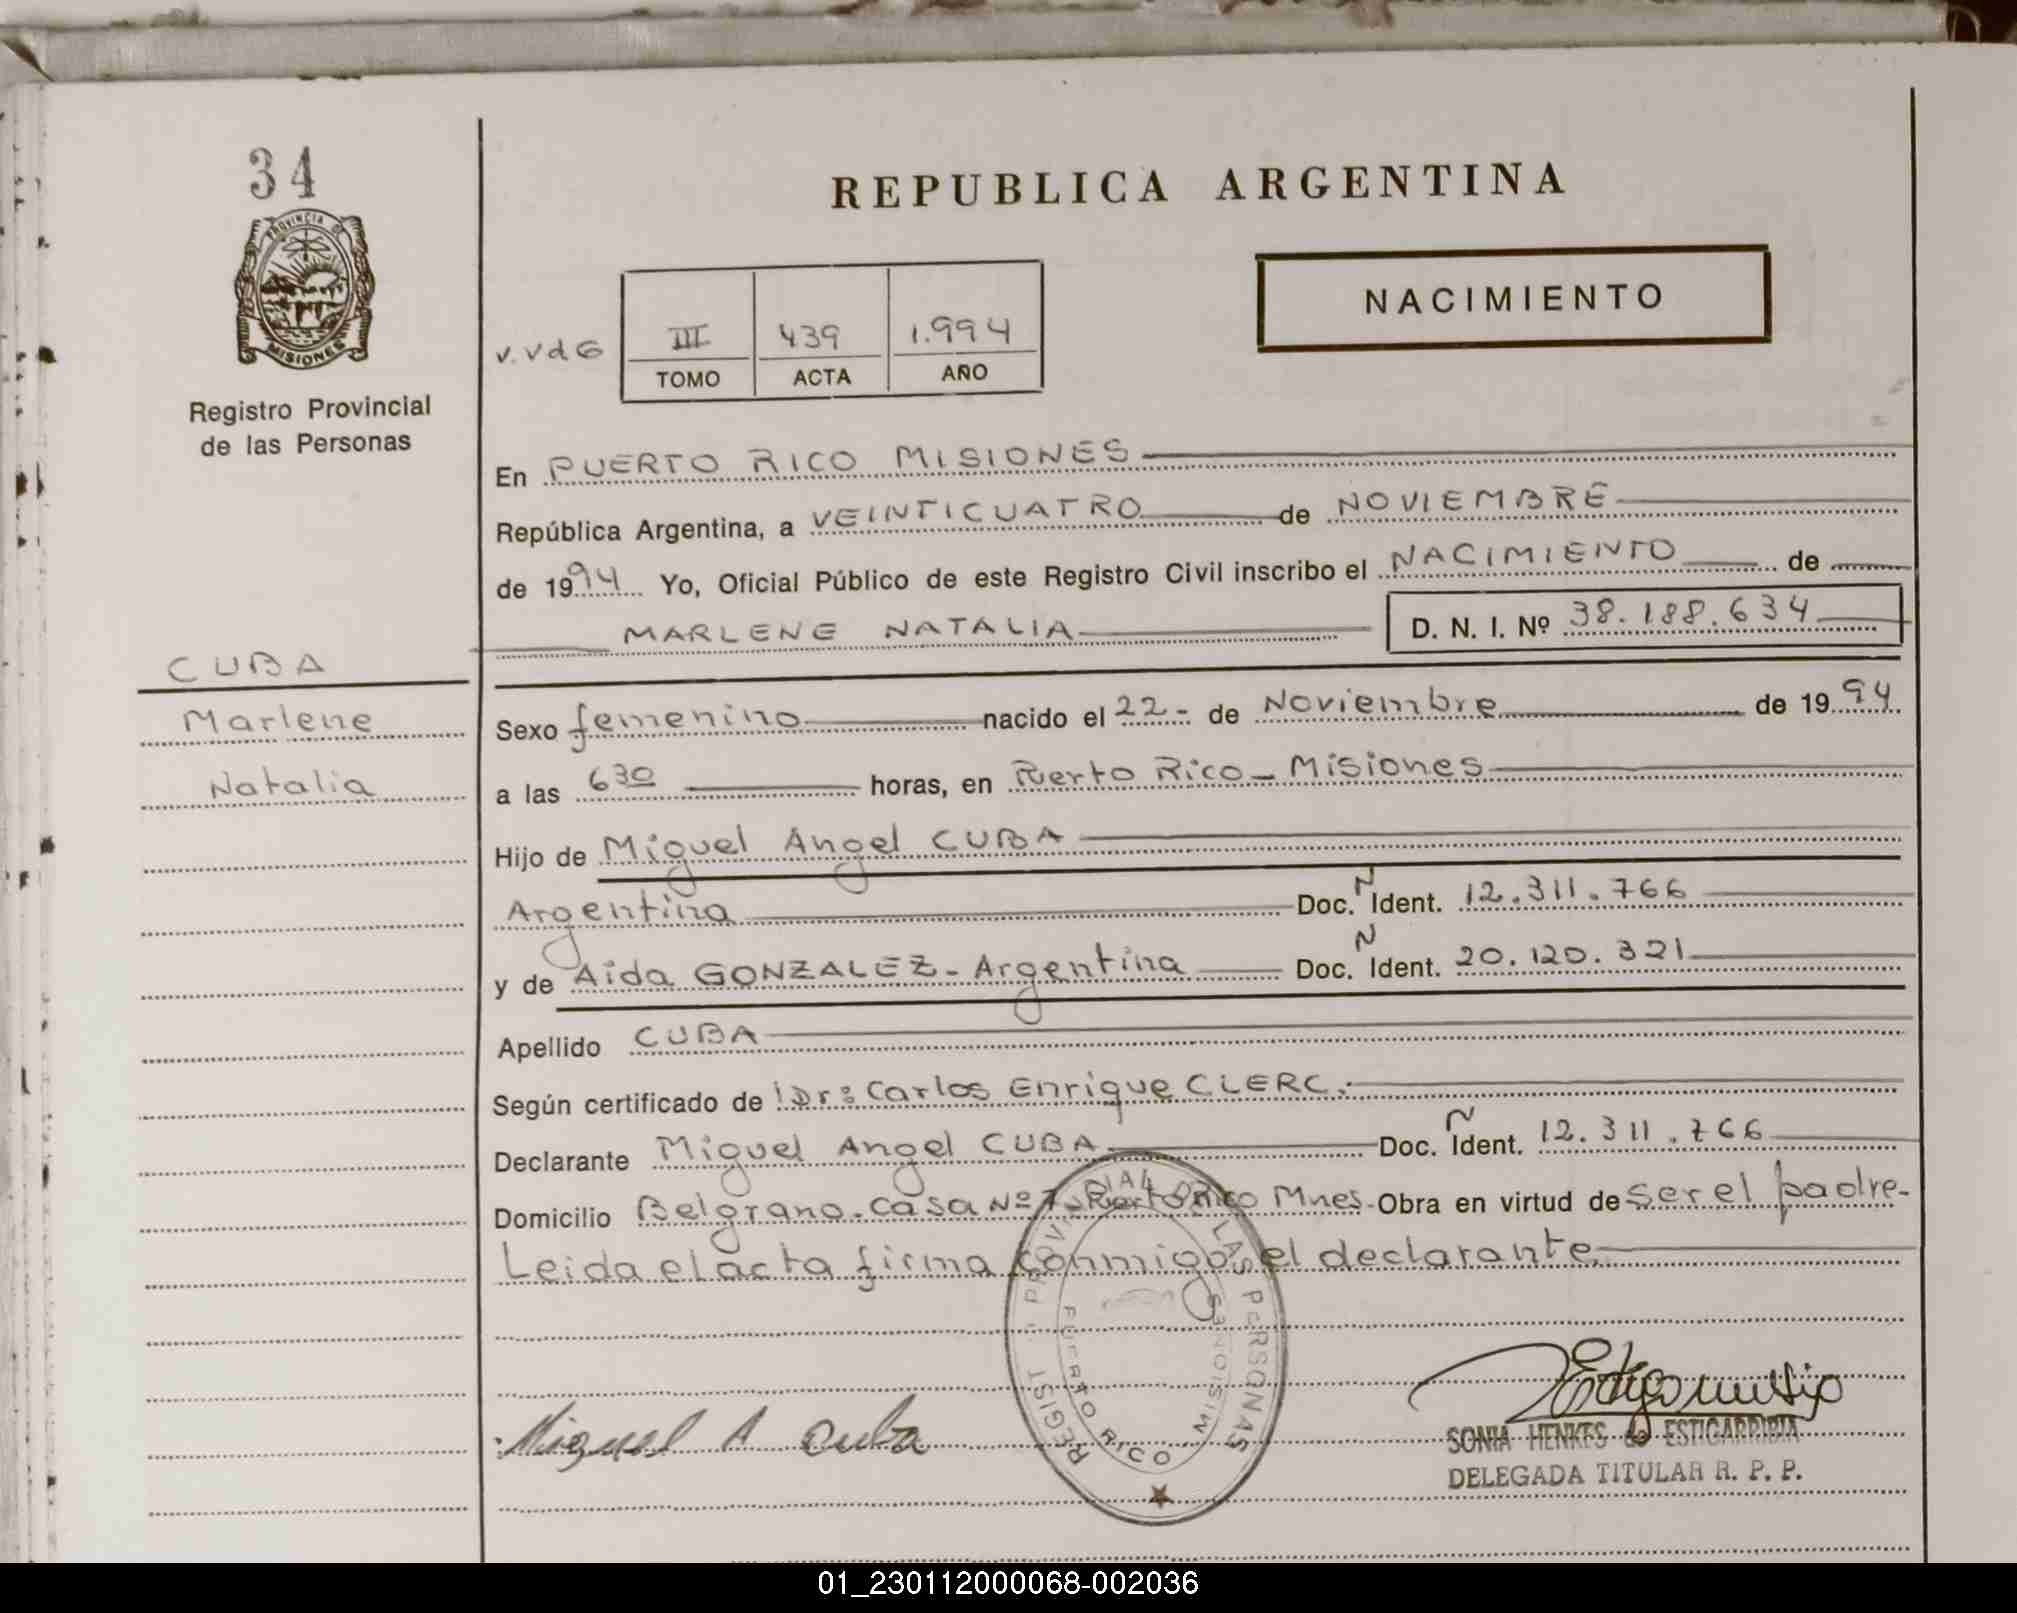 34
PROVINCIA DE
MISIONES
Registro Provincial
de las Personas
CUBA
Marlene
Natalia
REPUBLICA ARGENTINA
NACIMIENTO
v.vdG
III 439 1.994
TOMO ACTA AÑO
En PUERTO RICO MISIONES
República Argentina, a VEINTICUATRO de NOVIEMBRE
de 1994 Yo, Oficial Público de este Registro Civil inscribo el NACIMIENTO de
MARLENE NATALIA D. N. I. Nº 38.188.634
Sexo femenino nacido el 22- de Noviembre de 1994
a las 630 horas, en Puerto Rico - Misiones
Hijo de Miguel Angel CUBA
Argentina Doc. N Ident. 12.311.766
y de Aida GONZALEZ - Argentina Doc. N Ident. 20.120.321
Apellido CUBA
Según certificado de Dr: Carlos Enrique CLERC.
Declarante Miguel Angel CUBA Doc. N Ident. 12.311.766
Domicilio Belgrano. Casa Nº 7. Puerto Rico Mnes. Obra en virtud de ser el padre.
Leida el acta firma conmigo el declarante.
Miguel A Cuba
SONIA HENKES de ESTIGARRIBIA
DELEGADA TITULAR R. P. P.
LAS PERSONAS
PUERTO RICO MISIONES
01_230112000068-002036